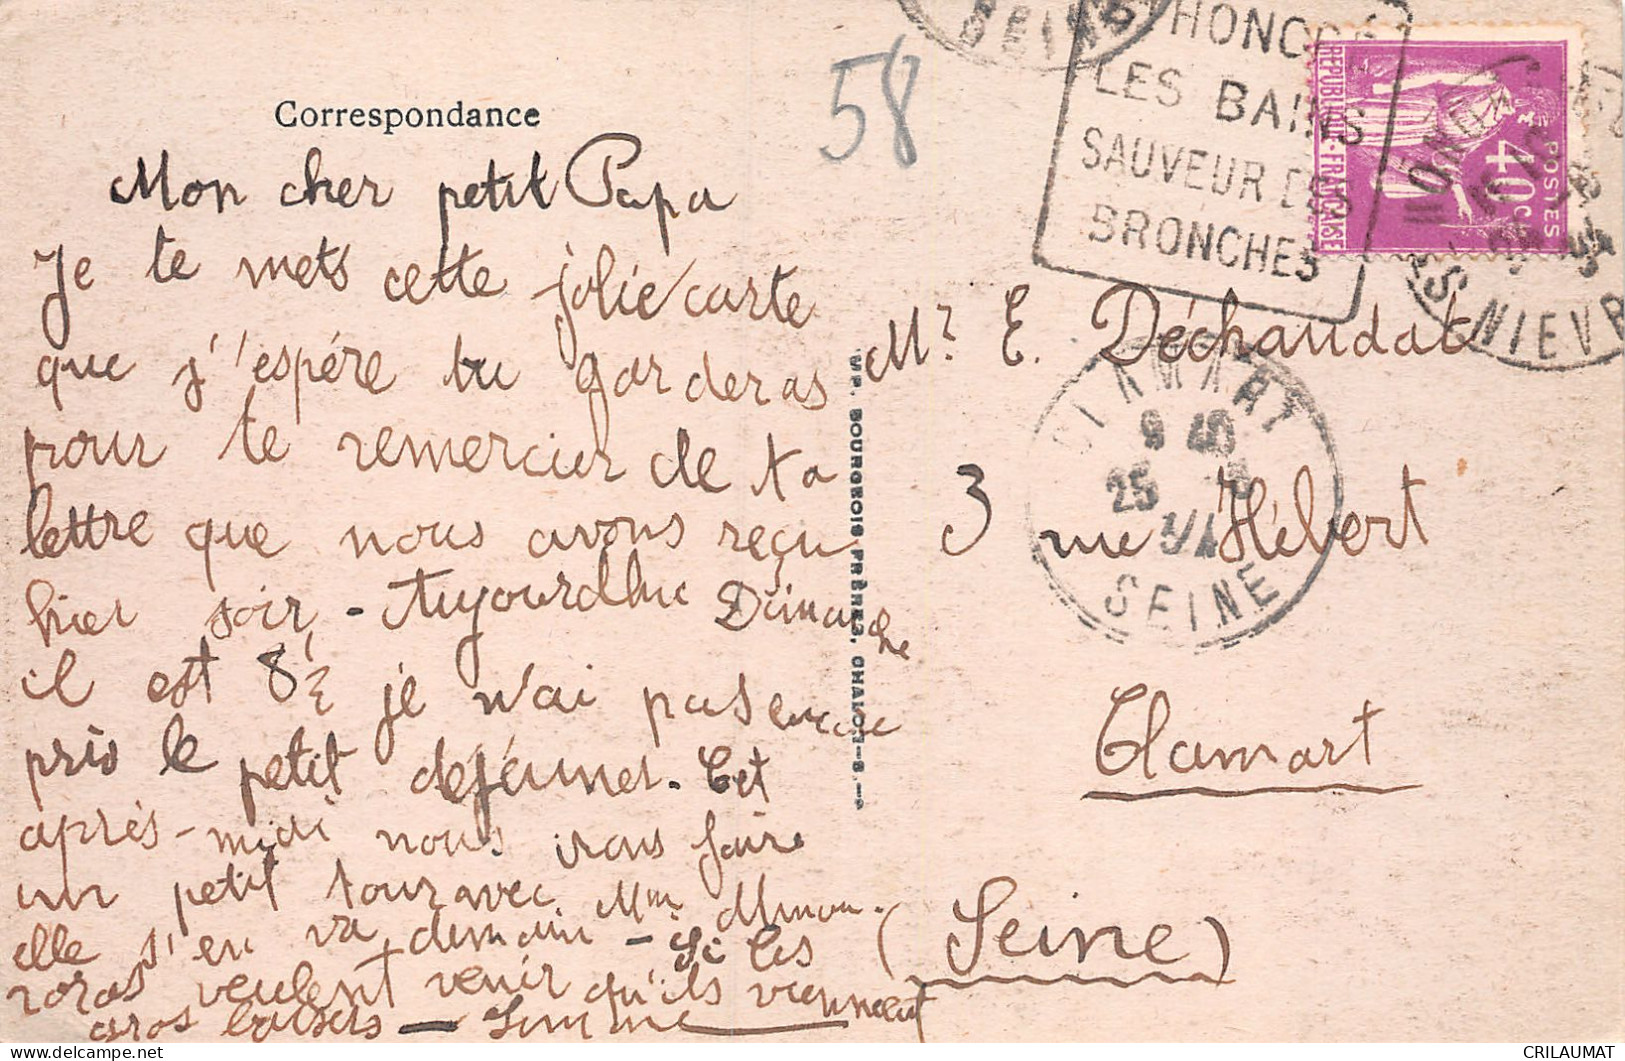 Correspondance
58
Mon cher petit Papa
Je te mets cette jolie carte
que j'espére tu garderas
pour te remercier de ta
lettre que nous avons reçu
hier soir - Aujourdhui Dimanche
il est 8 1/2 je n'ai pas encore
pris le petit dejéuner. Cet
après-midi nous irons faire
un petit tour avec Mme
elle s'en va demain - Si les
veulent venir qu'ils viennent
gros baisers -
IMP. BOURGEOIS FRÈRES, CHALON-S-S.
SEINE
HONORÉ
LES BAINS
SAUVEUR DES
BRONCHES
REPUBLIQUE·FRANÇAISE
POSTES
40c
NIEVR
Mr E. Déchaudat
3 rue Hébert
Clamart
(Seine)
CLAMART
9 40
25
SEINE
CRILAUMAT